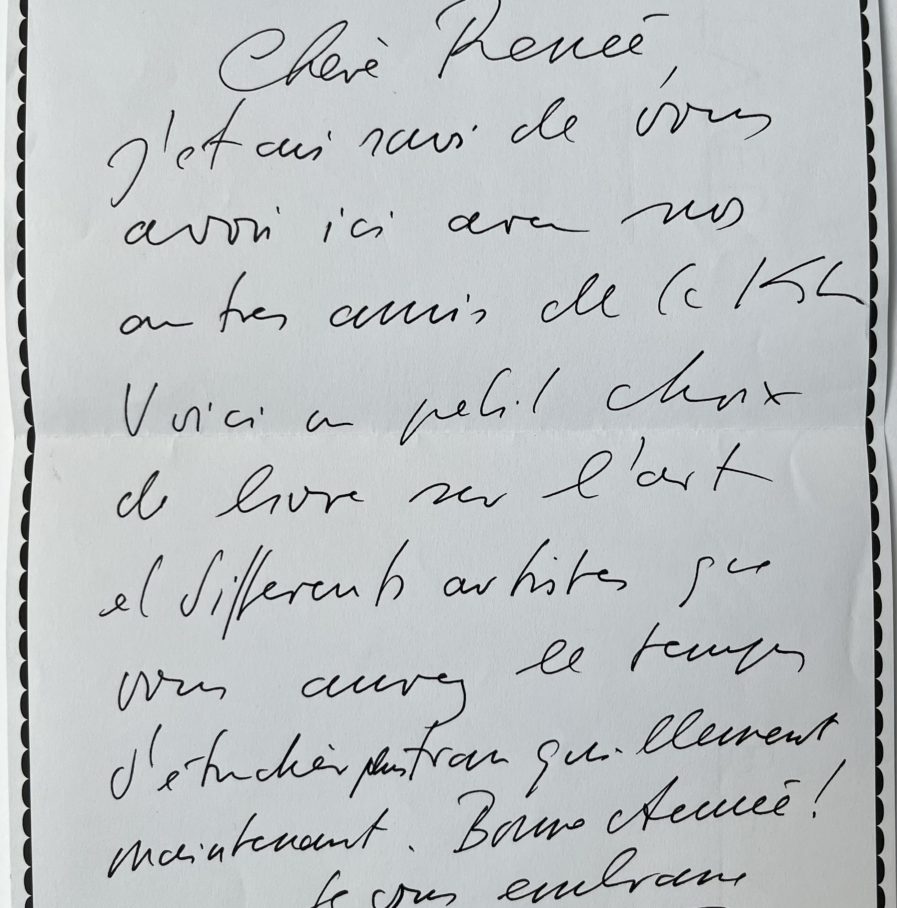 Cherè Renée,
J'etai ravi de vous
avoir ici avec nos
autres amis de la
Voici un petit choix
de livre sur l'art
et differents artistes que
vous aurez le temps
d'étudièr plus tranquillement
maintenant. Bonne Année!
Je vous embrasse